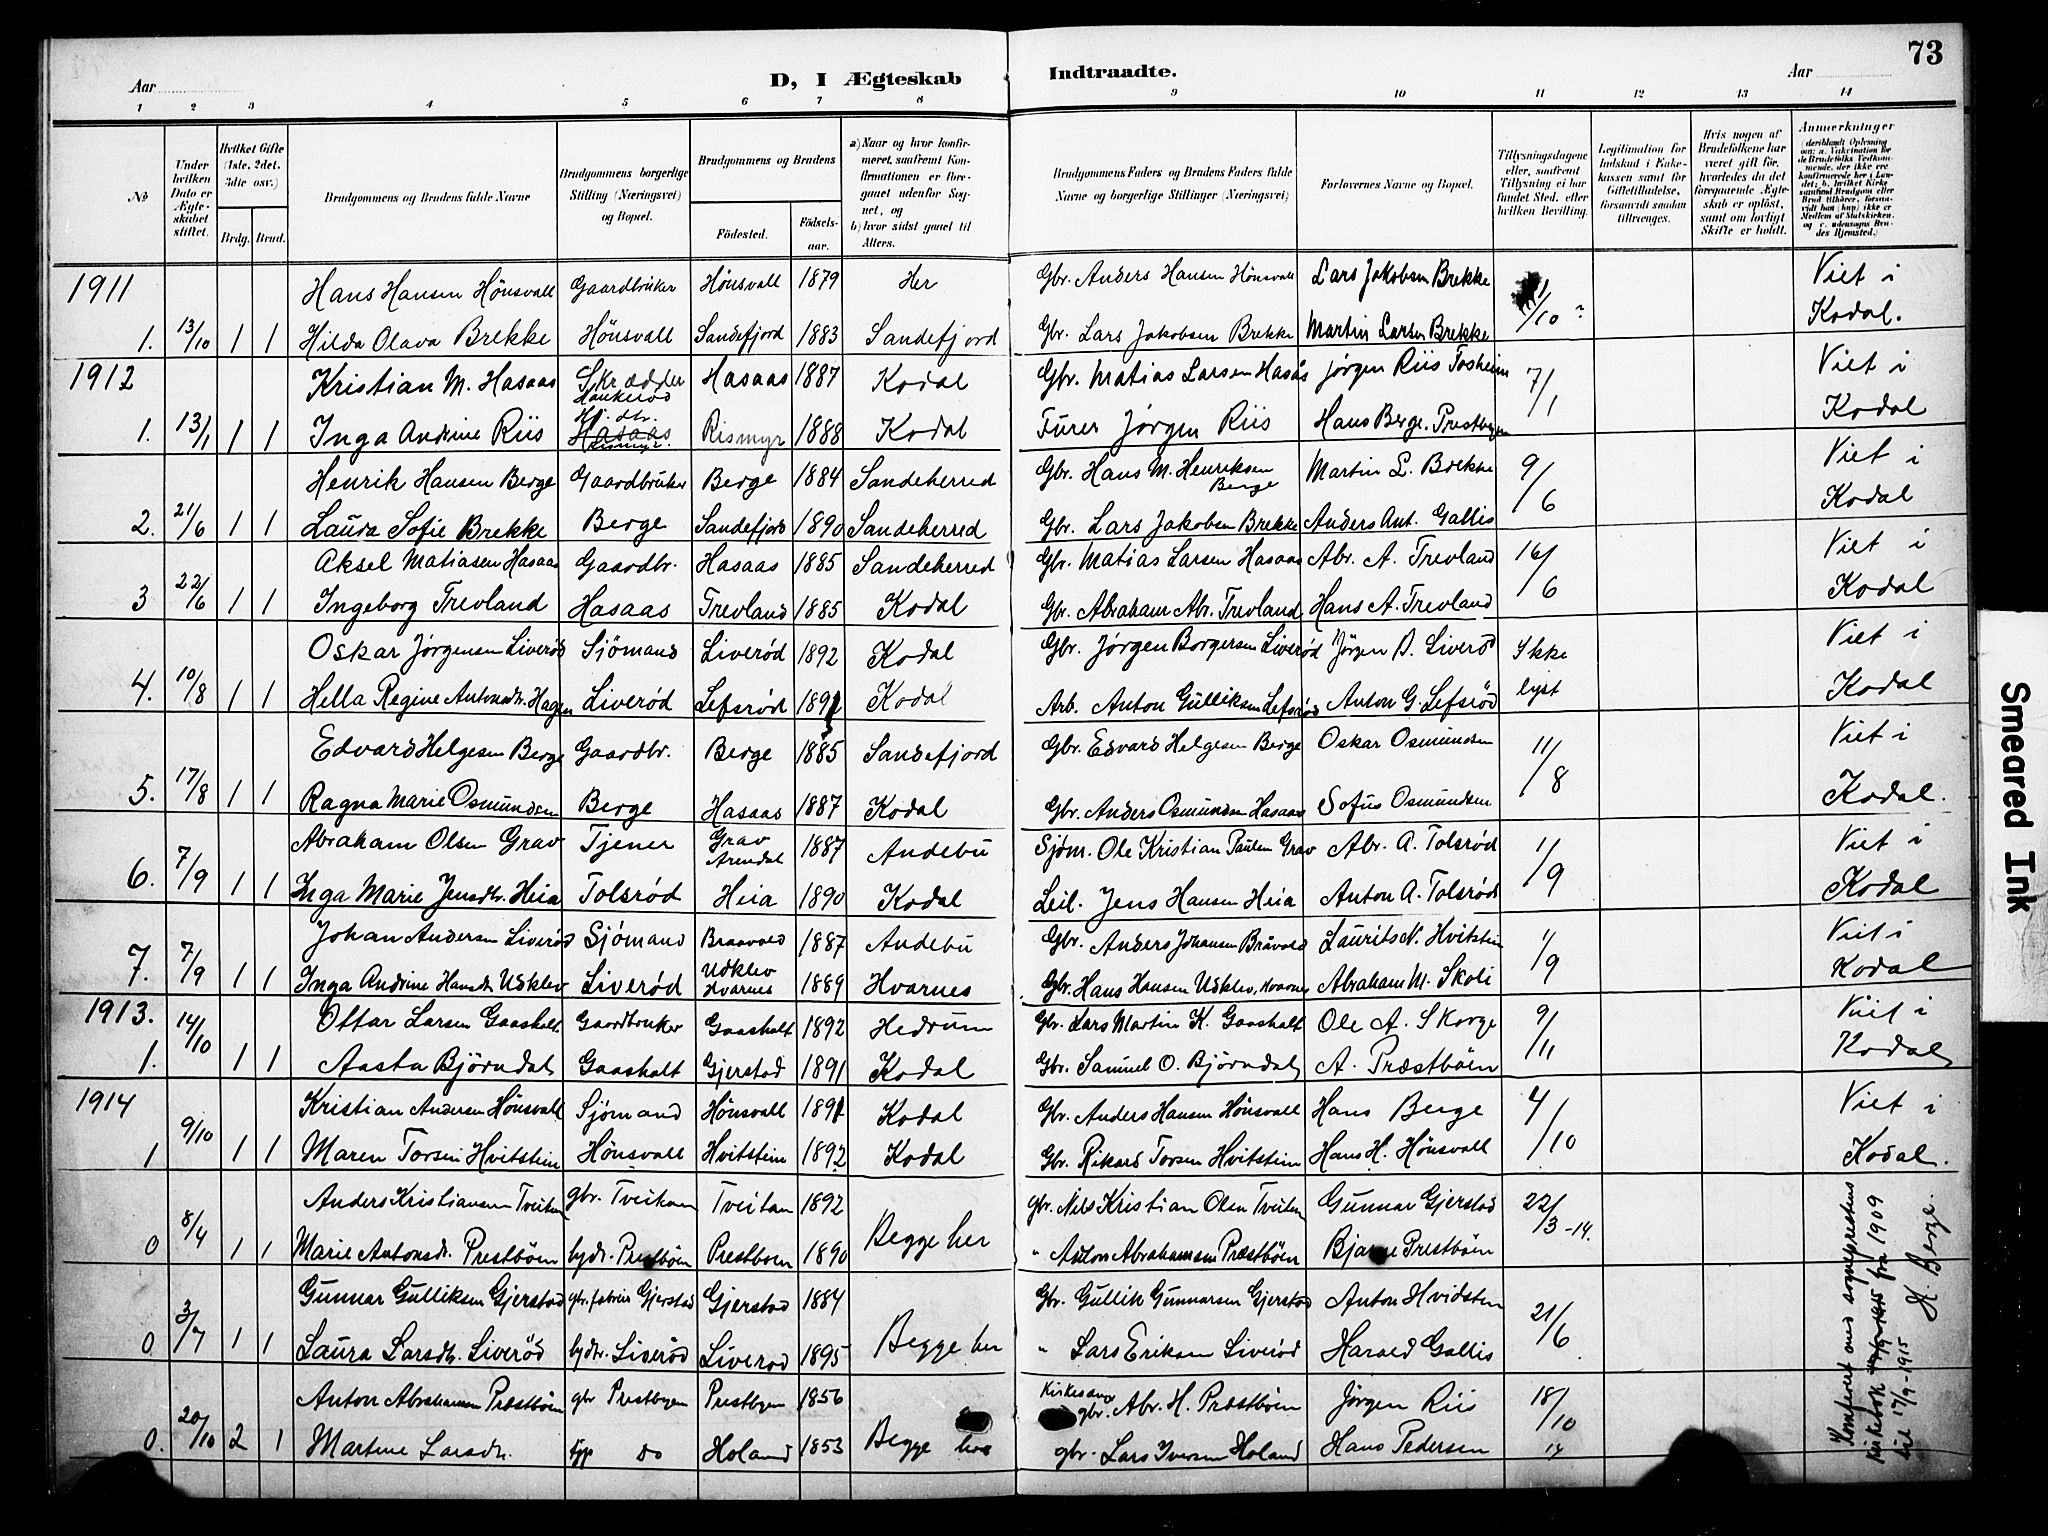 73
Aar
D, I Ægteskab Indtraadte.
Aar
1 2 3 4 5 6 7 8 9 10 11 12 13 14
№
Under hvilken Dato er Ægteskabet stiftet.
Hvilket Gifte (1ste, 2det, 3die osv.)
Brdg. Brud.
Brudgommens og Brudens fulde Navne
Brudgommens borgerlige Stilling (Næringsvei) og Bopæl.
Brudgommens og Brudens
Födested.
Födsels-aar.
a) Naar og hvor konfirmeret, saafremt Konfirmationen er foregaaet udenfor Sognet, og
b) hvor sidst gaaet til Alters.
Brudgommens Faders og Brudens Faders fulde Navne og borgerlige Stillinger (Næringsvei)
Forlovernes Navne og Bopæl.
Tillysningsdagene eller, saafremt Tillysning ei har fundet Sted, efter hvilken Bevilling.
Legitimation for Indskud i Enkekassen samt for Giftetilladelse, forsaavidt saadan tiltrænges.
Hvis nogen af Brudefolkene har været gift för, hvorledes da det foregaaende Ægteskab er oplöst, samt om lovligt Skifte er holdt.
Anmerkninger
1911 Hans Hansen Hönsvall Gaardbruker Hönsvall 1879 Her Gbr. Anders Hansen Hönsvall Lars Jakobsen Brekke 1/10 Viet i
1. 13/10 1 1 Hilda Olava Brekke Hönsvall Sandefjord 1883 Sandefjord Gbr. Lars Jakobsen Brekke Martin Larsen Brekke Kodal.
1912 Kristian M. Hasaas Skrædder Haukerød Hasaas 1887 Kodal Gbr. Matias Larsen Hasås Jørgen Riis 7/1 Viet i
1. 13/1 1 1 Inga Andrine Riis Hasaas Rismyr Rismyr 1888 Kodal Furer Jørgen Riis Hans Berge. Prestbyen Kodal
Henrik Hansen Berge Gaardbruker Berge 1884 Sandeherred Gbr. Hans M. Henriksen Berge Martin L. Brekke 9/6 Viet i
2. 21/6 1 1 Laura Sofie Brekke Berge Sandefjord 1890 Sandeherred Gbr. Lars Jakobsen Brekke Anders Ant. Gallis Kodal
Aksel Matiasen Hasaas Gaardbr. Hasaas 1885 Sandeherred Gbr. Matias Larsen Hasaas Abr. A. Trevland 16/6 Viet i
3 22/6 1 1 Ingeborg Trevland Hasaas Trevland 1885 Kodal Gbr. Abraham Abr. Trevland Hans A. Trevland Kodal
Oskar Jørgensen Liverød Sjömand Liverød 1892 Kodal Gbr. Jørgen Borgersen Liverød Jörgen B. Liveröd Ikke Viet i
4. 10/8 1 1 Hella Regine Antonsdr. Hagen Liverød Lefsrød 1891 Kodal Arb. Anton Gulliksen Lefsrød Anton G. Lefsröd lyst Kodal
Edvard Helgesen Berge Gaardbr. Berge 1885 Sandefjord Gbr. Edvard Helgesen Berge Oskar Osmundsen 11/8 Viet i
5. 17/8 1 1 Ragna Marie Osmundsen Berge Hasaas 1887 Kodal Gbr. Anders Osmundsen Hasaas Sofus Osmundsen Kodal.
Abraham Olsen Grav Tjener Grav Arendal 1887 Andebu Sjøm. Ole Kristian Paulsen Grav Abr. A. Tolsrød 1/9 Viet i
6. 7/9 1 1 Inga Marie Jensdtr. Heia Tolsrød Heia 1890 Kodal Leil. Jens Hansen Heia Anton A. Tolsrød Kodal
Johan Andersen Liverød Sjömand Braavold 1887 Andebu Gbr. Anders Johansen Bråvold Laurits N. Hvitstein 1/9 Viet i
7. 7/9 1 1 Inga Andrine Hansdr. Udklev Liverød Udklev Hvarnes 1889 Hvarnes Gbr. Hans Hansen Udklev, Kvarnes Abraham M. Skoli Kodal
1913. Ottar Larsen Gaasholt Gaardbruker Gaasholt 1892 Hedrum Gbr. Lars Martin K. Gaasholt Ole A. Skorge 9/11 Viet i
1. 14/10 1 1 Aasta Björndal Gaasholt Gjerstad 1891 Kodal Gbr. Samuel O. Björndal A. Præstböen Kodal
1914 Kristian Andersen Hönsvall Sjömand Hönsvall 1891 Kodal Gbr. Anders Hansen Hönsvall Hans Berge 4/10 Viet i
1 9/10 1 1 Maren Torsen Hvitstein Hönsvall Hvitstein 1892 Kodal Gbr. Rikard Torsen Hvitstein Hans H. Hönsvall Kodal.
Anders Kristiansen Tveitan gbr. Tveitan Tveitan 1892 Begge her gbr. Nils Kristian Olsen Tveitan Gunnar Gjerstad 22/3-14.
0 8/4 1 1 Marie Antonsdr. Prestböen bydr. Prestböen Prestboen 1890 " Anton Abrahamsen Præstböen Bjarne Prestböen
Gunnar Gulliksen Gjerstad Gjerstad Gjerstad 1884 Begge her Gbr. Gullik Gunnarsen Gjerstad Anton Hvidsten 21/6
0. 3/7 1 1 Laura Larsdtr. Liveröd bydtr. Liveröd Liverod 1895 " Lars Eriksen Liveröd Harald Gallis
Anton Abrahamsen Præstböen gbr Prestbyen Prestbyen 1856 Begge her Kirkesanger gbr. Abr. H. Præstböen Jørgen Riis 18/10
0. 20/10 2 1 Martine Larsdtr. do Holand 1853 gbr. Lars Iversen Holand Hans Pedersen 14
Konfereret med sogneprestens
kirkebok fra 1909
til 17/9-1915
H. Berge.
Smeared Ink